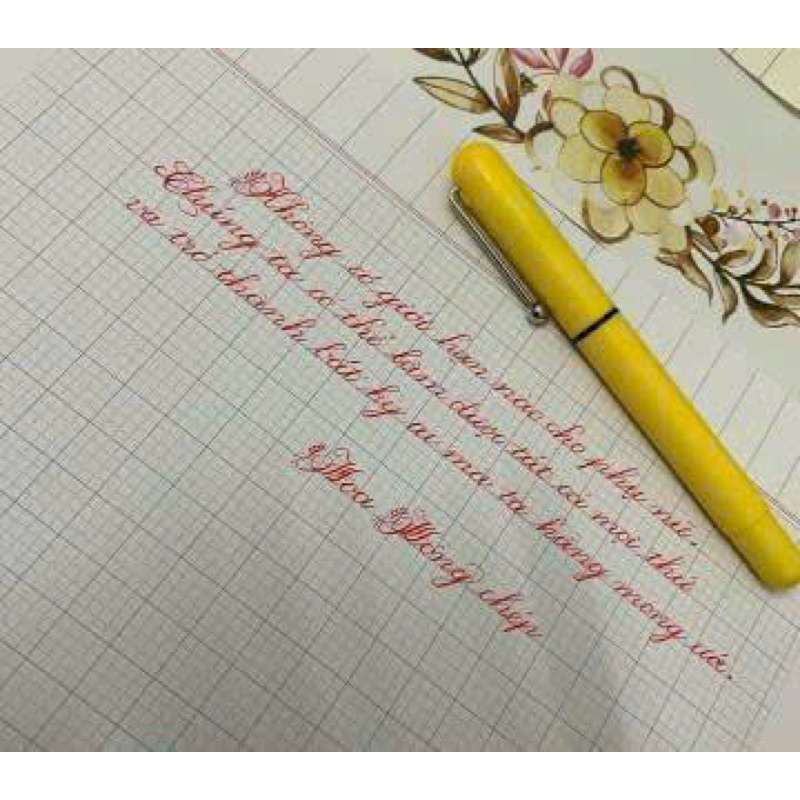 Không có giới hạn nào cho phụ nữ.
Chúng ta có thể làm được tất cả mọi thứ
và trở thành bất kỳ ai mà ta hằng mong ước.
Hoa Hồng chép